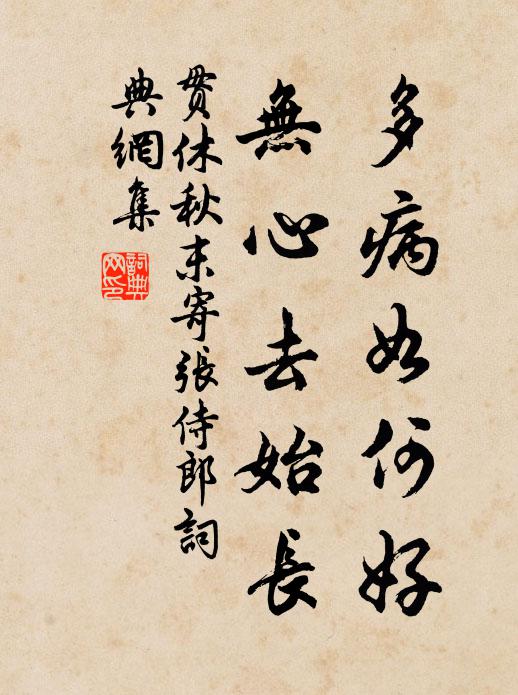 多病如何好
無心去始長
貫休秋末寄張侍郎詞
典網集
詞典
网印